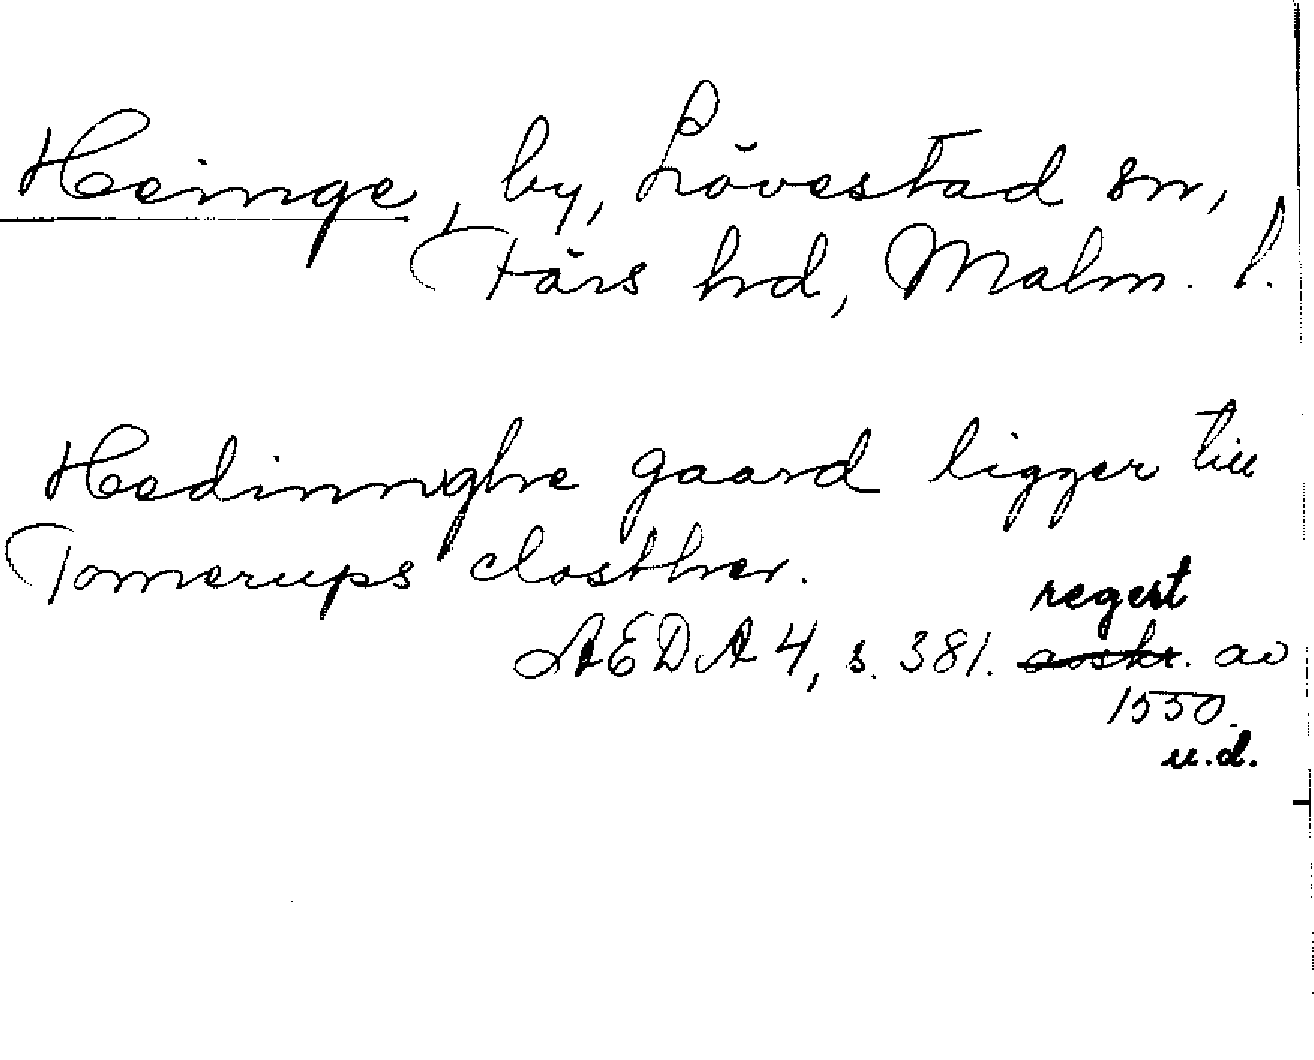 Heinge, by, Lövestad sn,
Färs hd, Malm. l.
Hedinnghe gaard ligger till
Tomerups closther.
regest
AEDA 4, s. 381. avskr. av
1550.
u.d.